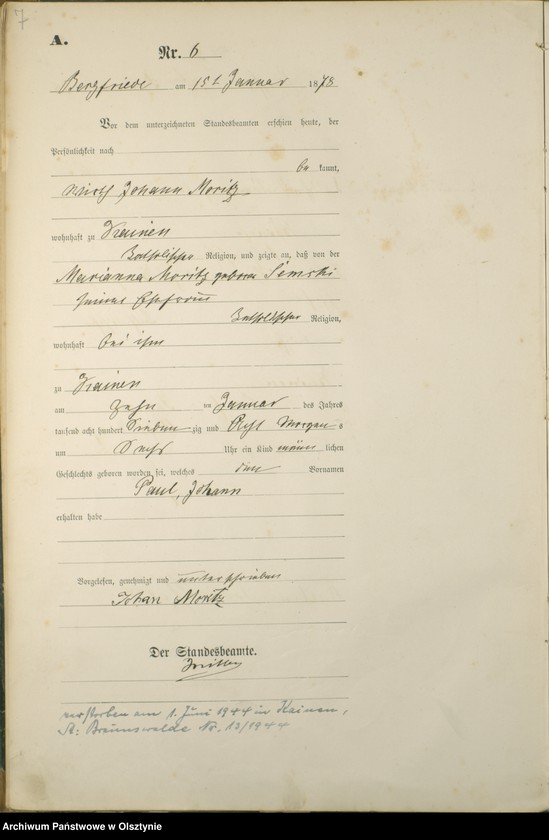 7
A.
Nr. 6
Bergfriede am 15t Januar 1878
Vor dem unterzeichneten Standesbeamten erschien heute, der
Persönlichkeit nach
be kannt,
Wirth Johann Moritz
wohnhaft zu Kainen
katholischer Religion, und zeigte an, daß von der
Marianna Moritz geborene
seiner Ehefrau
katholischer Religion,
wohnhaft bei ihm
zu Kainen
am zehn ten Januar des Jahres
tausend acht hundert Sieben zig und Acht Morgens
um Sechs Uhr ein Kind männ lichen
Geschlechts geboren worden sei, welches den Vornamen
Paul, Johann
erhalten habe
Vorgelesen, genehmigt und unterschrieben
Johan Moritz
Der Standesbeamte.
verstorben am 1. Juni 1944 in Kainen,
St: Braunswalde Nr. 13/1944
Archiwum Państwowe w Olsztynie